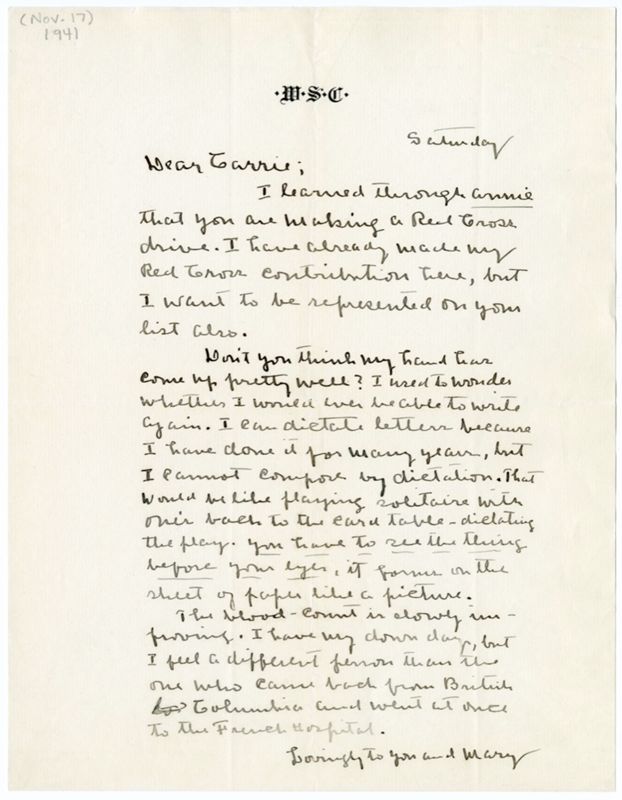 (Nov. 17)
1941
·W·S·C·
Saturday
Dear Carrie;
I learned through Annie
that you are making a Red Cross
drive. I have already made my
Red Cross contribution here, but
I want to be represented on your
list also.
Don't you think my hand has
come up pretty well? I used to wonder
whether I would ever be able to write
again. I can dictate letters because
I have done it for many years, but
I cannot compose by dictation. That
would be like playing solitaire with
one's back to the card table - dictating
the play. You have to see the thing
before your eyes, it forms on the
sheet of paper like a picture.
The blood-count is slowly im-
proving. I have my down days, but
I feel a different person than the
one who came back from British
Columbia and went at once
to the French Hospital.
Lovingly to you and Mary